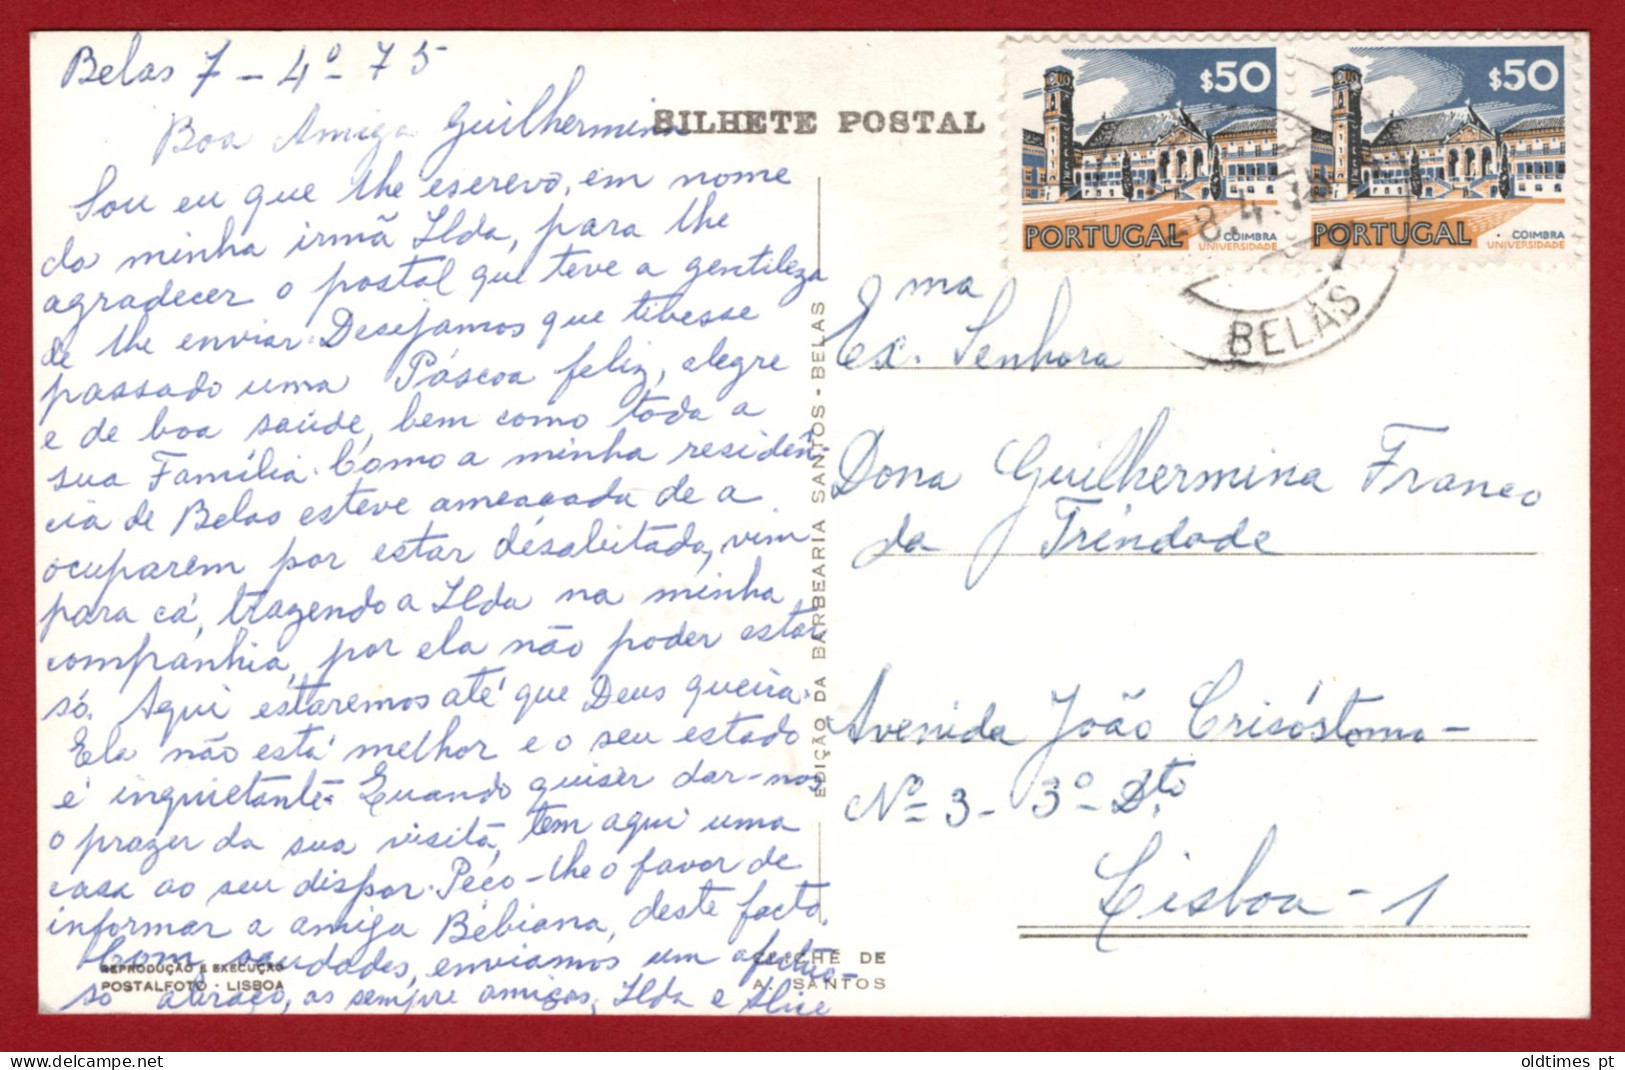 Belas 7 - 4º - 75
Boa Amiga Guilhermina
BILHETE POSTAL
Sou eu que lhe escrevo, em nome
da minha irmã Ilda, para lhe
agradecer o postal que teve a gentileza
de lhe enviar. Desejamos que tivesse
passado uma Páscoa feliz, alegre
e de boa saúde, bem como toda a
sua Família. Como a minha residên-
cia de Belas esteve ameaçada de a
ocuparem por estar desabitada, vim
para cá, trazendo a Ilda na minha
companhia, por ela não poder estar
só. Aqui estaremos até que Deus queira.
Ela não está melhor e o seu estado
é inquietante. Quando quiser dar-nos
o prazer da sua visita, tem aqui uma
casa ao seu dispor. Peço-lhe o favor de
informar a amiga Bébiana, deste facto.
Com saudades, enviamos um afectuo-
so abraço, as sempre amigas, Ilda e Alice
REPRODUÇÃO E EXECUÇÃO
POSTALFOTO · LISBOA
EDIÇÃO DA BARBEARIA SANTOS - BELAS
CLICHÉ DE
A. SANTOS
$50
PORTUGAL
COIMBRA
UNIVERSIDADE
$50
PORTUGAL
COIMBRA
UNIVERSIDADE
BELAS
Exma. Senhora
Dona Guilhermina Franco
da Trindade
Avenida João Crisóstomo -
Nº 3 - 3º Dto
Lisboa - 1
oldtimes pt